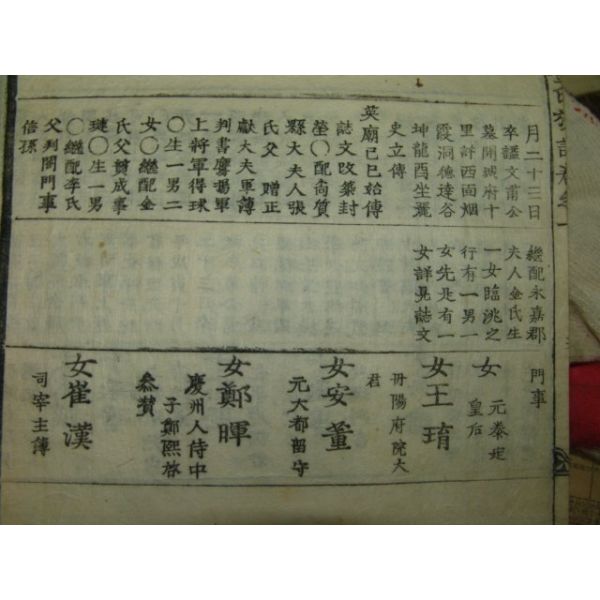 月二十三日
卒謚文甫公
墓開城府十
里許西面烟
霞洞德達谷
坤龍酉坐麓
史立傳
英廟己巳始傳
誌文改築封
瑩○配尙質
縣大夫人張
氏父 贈正
獻大夫軍簿
判書鷹揚軍
上將軍得球
○生一男二
女○繼配金
氏父 成事
璉○生一男
○繼配李氏
父判閤門事
信孫
繼配永嘉郡
夫人金氏生
一女臨洮之
行有一男一
女先是有一
女詳見誌文
門事
女 元泰妃
皇后
女王琄
丹陽府院大
君
女安董
元大都留守
女鄭暉
慶州人侍中
子鄭熙啓
參贊
女崔漢
司宰主簿